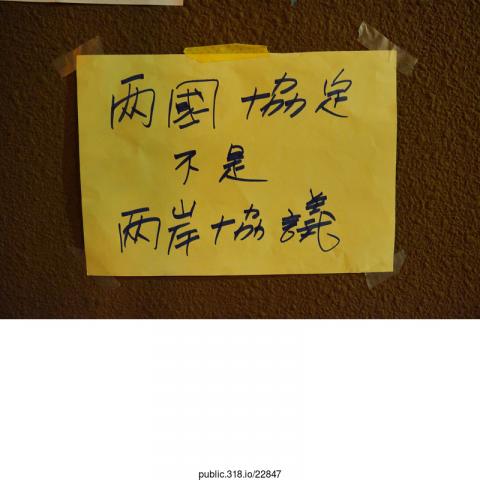 兩國協定
不是
兩岸協議
public.318.io/22847